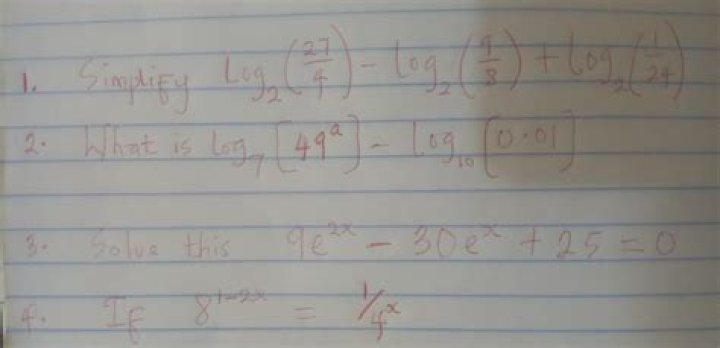 1. Simplify Log₂(27/4) - log₂(9/8) + log₂(1/24)
2. What is log₇[49ᵃ] - log₁₀[0.01]
3. Solve this 9e²ˣ - 30eˣ + 25 = 0
4. If 8¹⁻²ˣ = 1/4ˣ